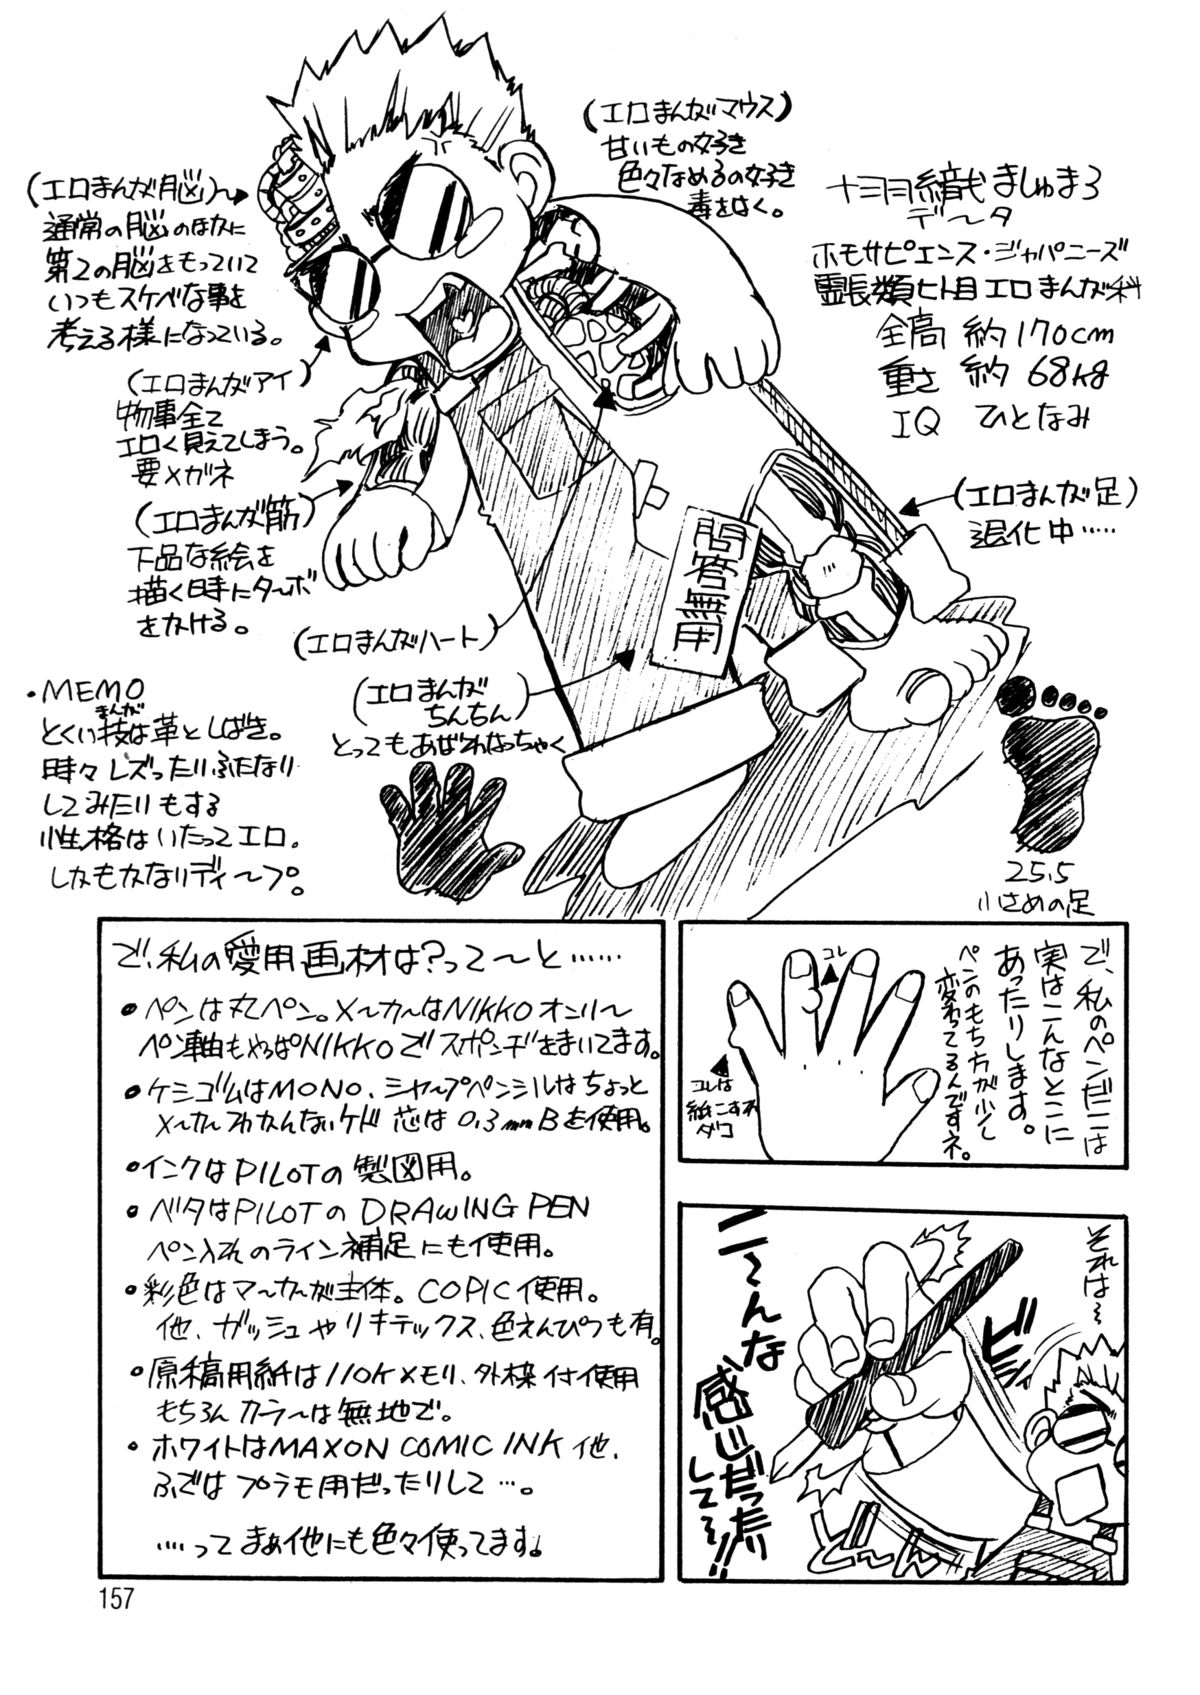 (エロまんがマウス)
甘いもの好き
色々なめるの好き
毒をはく。
ましゅまろ
データ
ホモサピエンス・ジャパニーズ
霊長類ヒト目エロまんが科
全高 約170cm
重さ 約68kg
IQ ひとなみ
(エロまんが脳)
通常の脳のほかに
第2の脳をもっていて
いつもスケベな事を
考える様になっている。
(エロまんがアイ)
物事全て
エロく見えてしまう。
要メガネ
(エロまんが筋)
下品な絵を
描く時にターボ
をかける。
(エロまんがハート)
(エロまんが足)
退化中……
問答無用
(エロまんが
ちんちん)
とってもあばれなっちゃく
・MEMO
まんが
とくい技は革としばき。
時々レズったりふたなり
してみたりもする
性格はいたってエロ.
しかもかなりディープ。
25.5
小さめの足
で、私の愛用画材は?って〜と……
●ペンは丸ペン。メーカーはNIKKOオンリー
ペン軸もやっぱNIKKOでスポンヂをまいてます。
●ケシゴムはMONO.シャープペンシルはちょっと
メーカーわかんないケド 芯は0.3mmBを使用。
●インクはPILOTの製図用。
●ベタはPILOTの DRAWING PEN
ペン入れのライン補足にも使用。
●彩色はマーカーが主体。COPIC使用。
他、ガッシュやリキテックス、色えんぴつも有。
●原稿用紙は110Kメモリ、外枠付使用
もちろんカラーは無地で。
●ホワイトはMAXON COMIC INK 他.
ふではプラモ用だったりして…。
……ってまぁ他にも色々使ってます。
で、私のペンだこは
実はこんなとこに
あったりします。
ペンのもち方が少し
変わってるんですネ。
コレ
コレは
紙こすれ
ダコ
それは〜
ビシ
ニ〜んな
感じだったり
してる!!
157